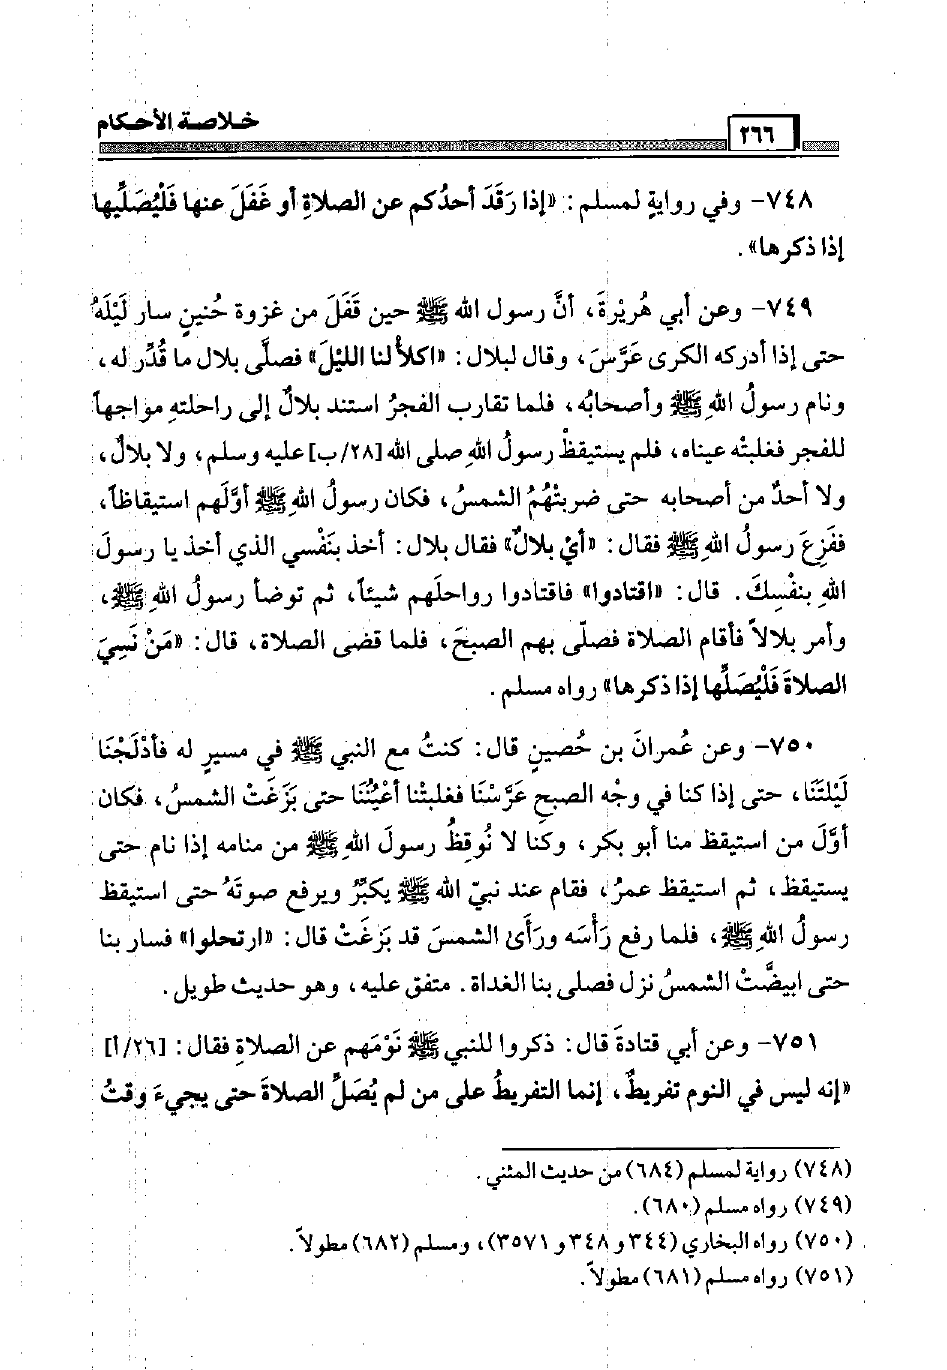 ٢٦٦
خلاصة الأحكام
٧٤٨- وفي روايةٍ لمسلم: «إذا رَقَدَ أحدُكم عن الصلاةِ أو غَفَلَ عنها فَلْيُصَلِّيها
إذا ذكرها».
٧٤٩- وعن أبي هُريْرةَ، أنَّ رسول الله ﷺ حين قَفَلَ من غزوة حُنينٍ سار لَيْلَهُ
حتى إذا أدركه الكرى عَرَّسَ، وقال لبلال: «اكلأْ لنا الليْلَ» فصلَّى بلال ما قُدِّر له،
ونام رسولُ اللهِ ﷺ وأصحابُه، فلما تقارب الفجرُ استند بلالٌ إلى راحلتهِ مواجهاً
للفجر فغلبتْه عيناه، فلم يستيقظْ رسولُ اللهِ صلى الله [٢٨/ب] عليه وسلم، ولا بلالٌ،
ولا أحدٌ من أصحابه حتى ضربتْهُمُ الشمسُ، فكان رسولُ اللهِ ﷺ أوَّلَهم استيقاظاً،
ففَزِعَ رسولُ اللهِ ﷺ فقال: «أيْ بلالٌ» فقال بلال: أخذ بنَفْسي الذي أخذ يا رسولَ
اللهِ بنفْسِكَ. قال: «اقتادوا» فاقتادوا رواحلَهم شيئاً، ثم توضأ رسولُ اللهِ ﷺ،
وأمر بلالاً فأقام الصلاة فصلّى بهم الصبحَ، فلما قضى الصلاة، قال: «مَنْ نَسِيَ
الصلاةَ فَلْيُصَلِّها إذا ذكرها» رواه مسلم.
٧٥٠- وعن عُمرانَ بن حُصينٍ قال: كنتُ مع النبي ﷺ في مسيرٍ له فأدْلَجْنَا
لَيْلتَنَا، حتى إذا كنا في وجْه الصبحِ عَرَّسْنَا فغلبتْنا أعْيُنُنَا حتى بَزَغَتْ الشمسُ، فكان
أوَّلَ من استيقظ منا أبو بكر، وكنا لا نُوقِظُ رسولَ اللهِ ﷺ من منامه إذا نام حتى
يستيقظ، ثم استيقظ عمرُ، فقام عند نبيّ الله ﷺ يكبّرُ ويرفع صوتَهُ حتى استيقظ
رسولُ اللهِ ﷺ، فلما رفع رَأْسَه ورَأَىٰ الشمسَ قد بَزَغَتْ قال: «ارتحلوا» فسار بنا
حتى ابيضَّتْ الشمسُ نزل فصلى بنا الغداة. متفق عليه، وهو حديث طويل.
٧٥١- وعن أبي قتادةَ قال: ذكروا للنبي ﷺ نَوْمَهم عن الصلاةِ فقال: [٢٦/أ]
«إنه ليس في النوم تفريطٌ، إنما التفريطُ على من لم يُصَلِّ الصلاةَ حتى يجيءَ وقتُ
(٧٤٨) رواية لمسلم (٦٨٤) من حديث المثنى.
(٧٤٩) رواه مسلم (٦٨٠).
(٧٥٠) رواه البخاري (٣٤٤ و ٣٤٨ و ٣٥٧١)، ومسلم (٦٨٢) مطولاً.
(٧٥١) رواه مسلم (٦٨١) مطولاً.